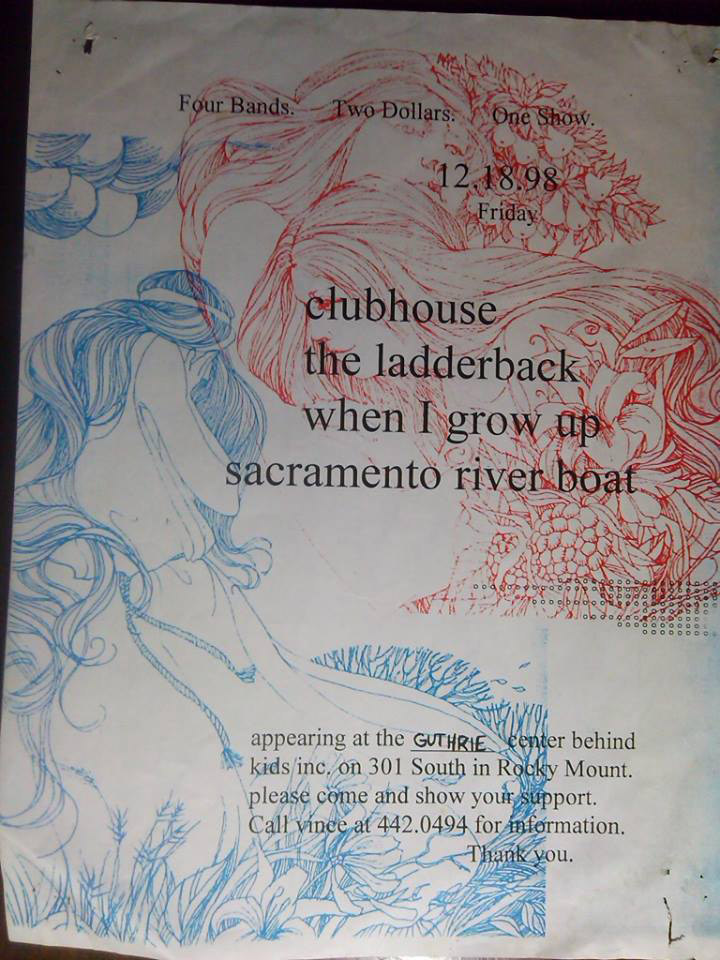 Four Bands. Two Dollars. One Show.
12.18.98
Friday
clubhouse
the ladderback
when I grow up
sacramento river boat
appearing at the GUTHRIE center behind
kids inc. on 301 South in Rocky Mount.
please come and show your support.
Call vince at 442.0494 for information.
Thank you.